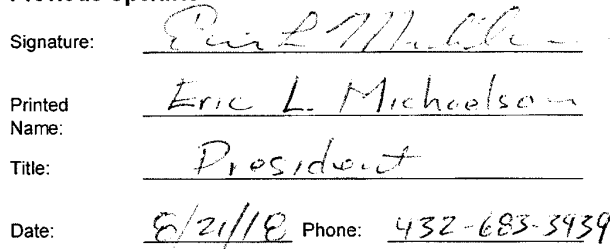 Previous Operator
Signature: Eric L Michaelson
Printed Name: Eric L. Michaelson
Title: President
Date: 8/21/18 Phone: 432-683-3939